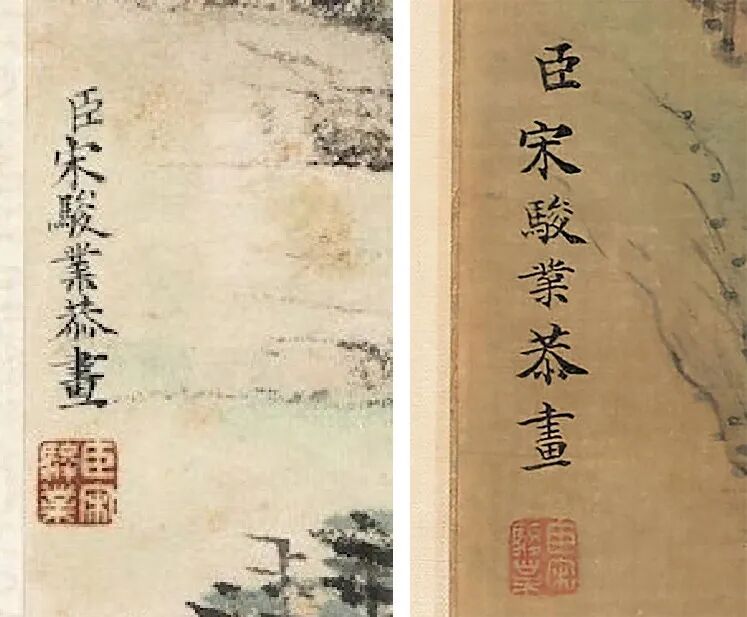 臣宋駿業恭畫
臣宋駿業
臣宋駿業恭畫
臣宋駿業